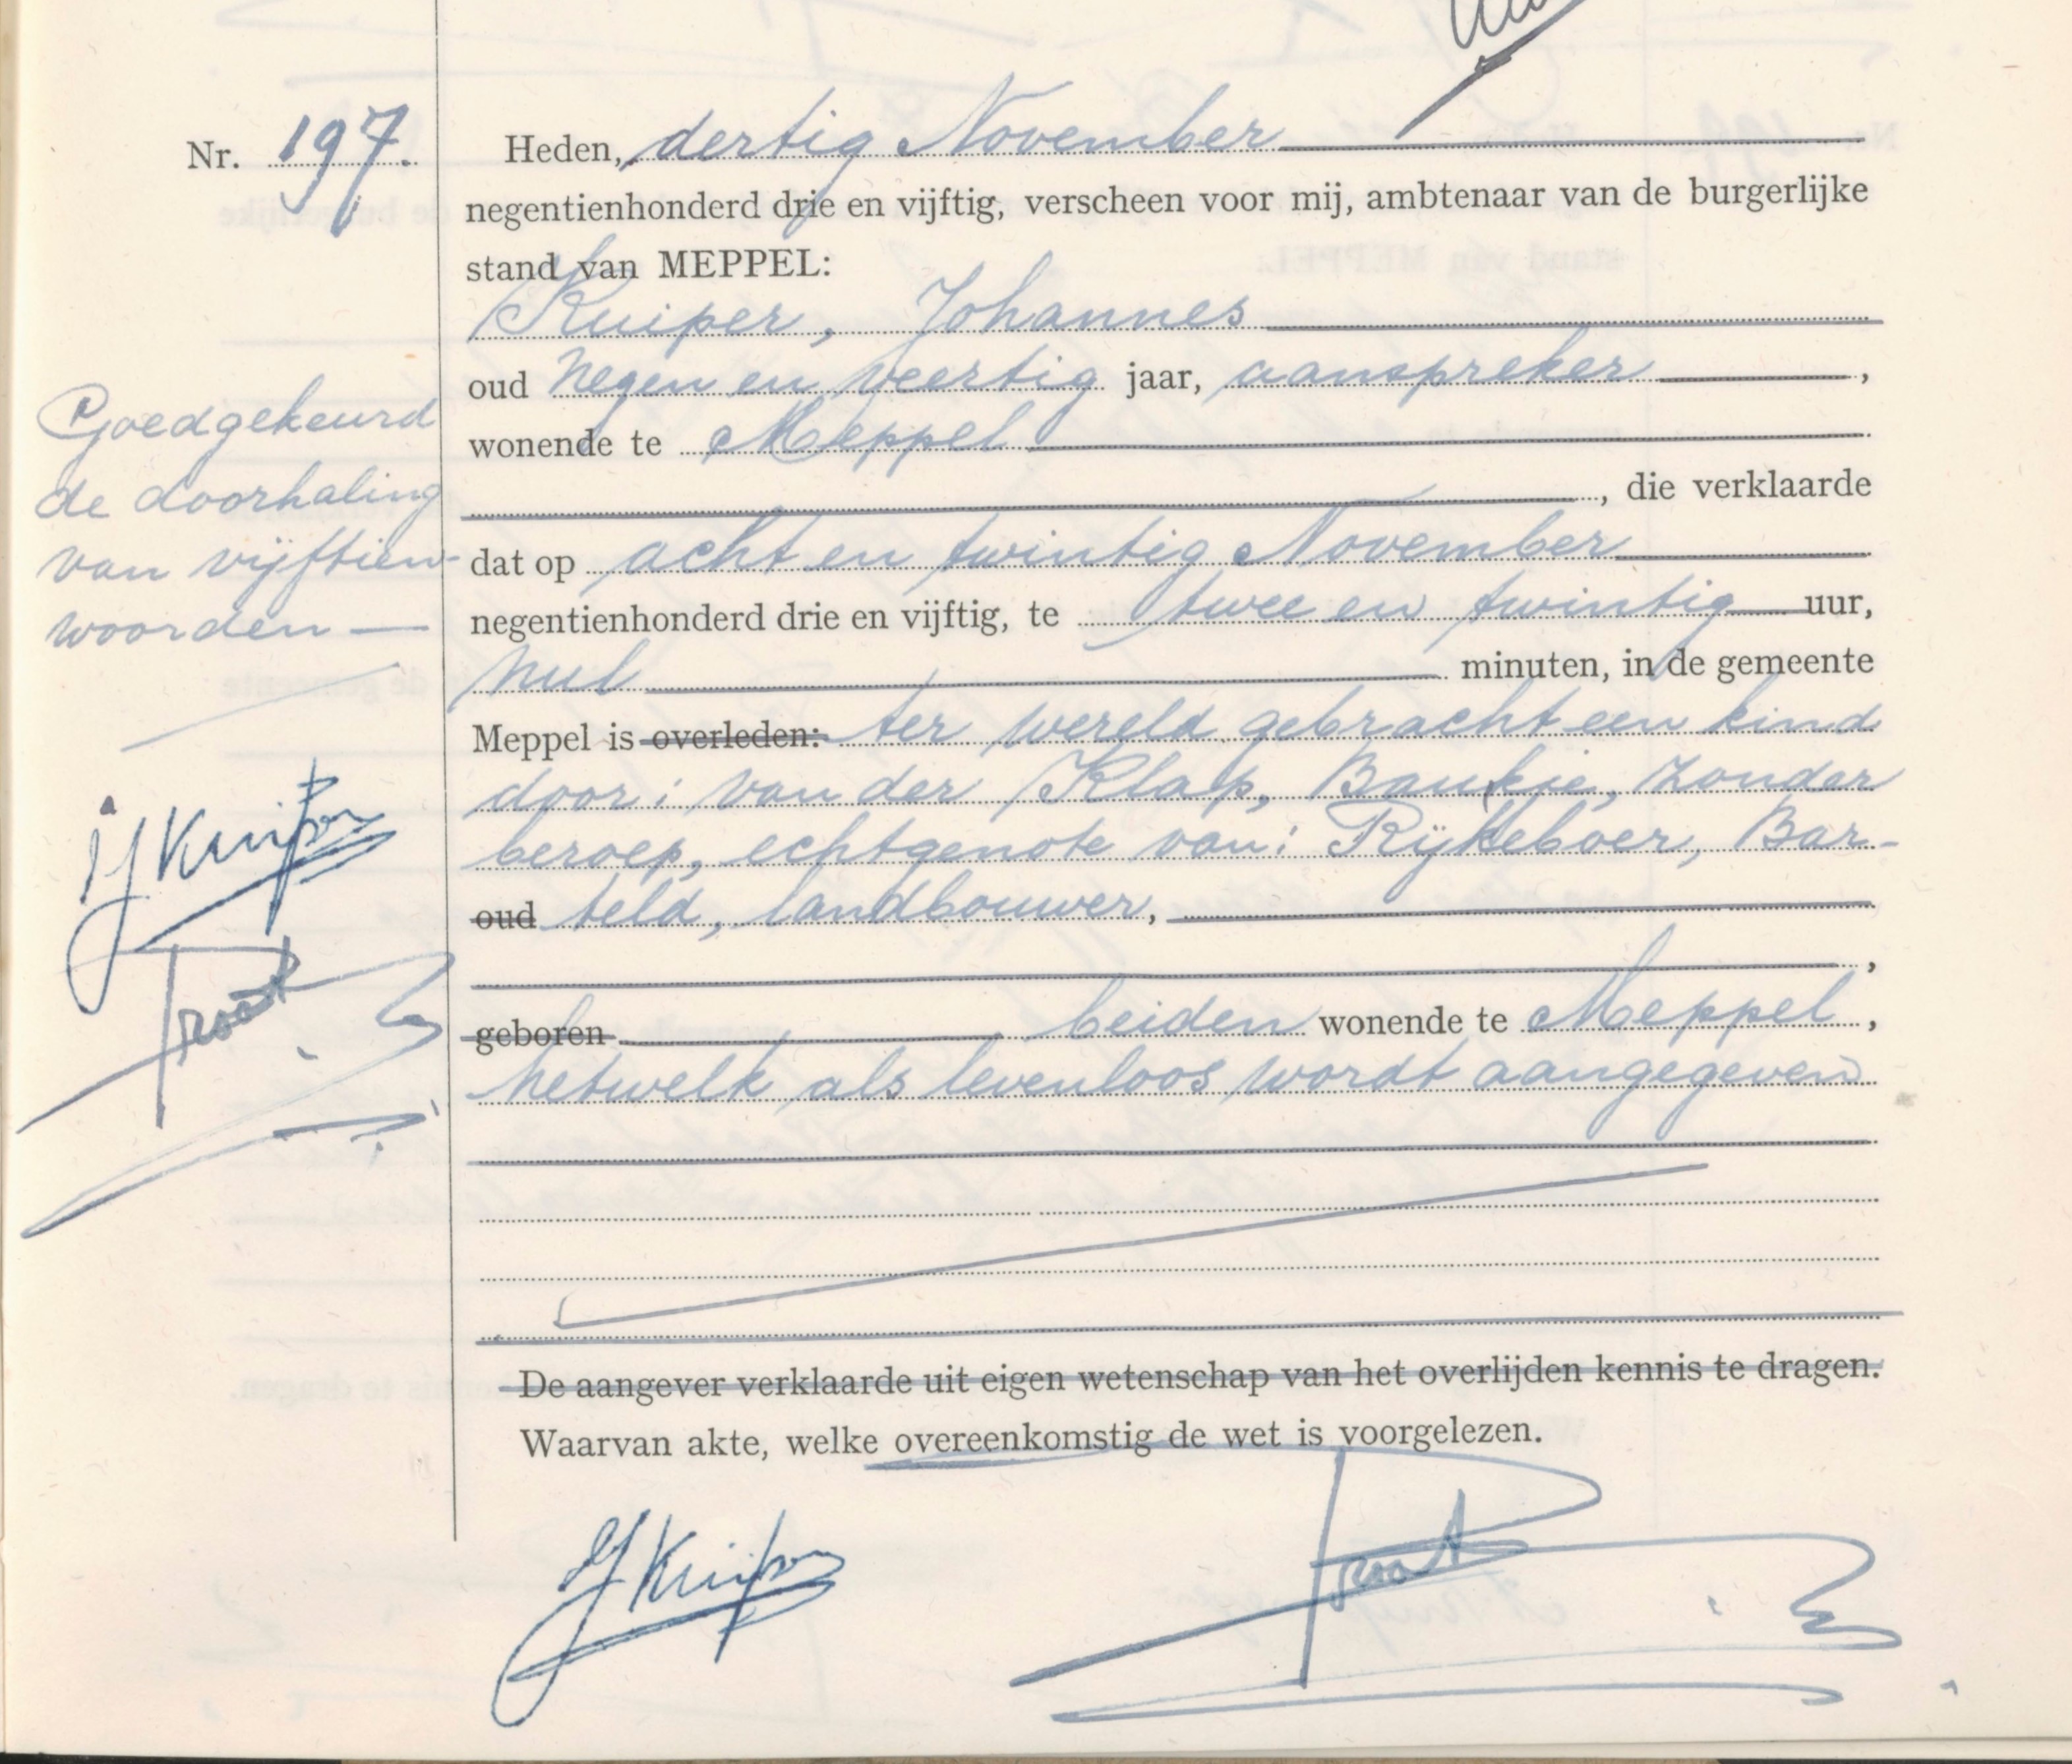 Nr. 197.
Heden, dertig November
negentienhonderd drie en vijftig, verscheen voor mij, ambtenaar van de burgerlijke
stand van MEPPEL:
Kuiper, Johannes
oud negen en veertig jaar, aanspreker ,
wonende te Meppel
, die verklaarde
dat op acht en twintig November
negentienhonderd drie en vijftig, te twee en twintig uur,
nul minuten, in de gemeente
Meppel is overleden: ter wereld gebracht een kind
door: van der Klap, Baukje, zonder
beroep, echtgenote van: Rijkeboer, Bar-
oud teld, landbouwer,
,
geboren beiden wonende te Meppel ,
hetwelk als levenloos wordt aangegeven
De aangever verklaarde uit eigen wetenschap van het overlijden kennis te dragen.
Waarvan akte, welke overeenkomstig de wet is voorgelezen.
JKuiper
Goedgekeurd
de doorhaling
van vijftien
woorden
JKuiper